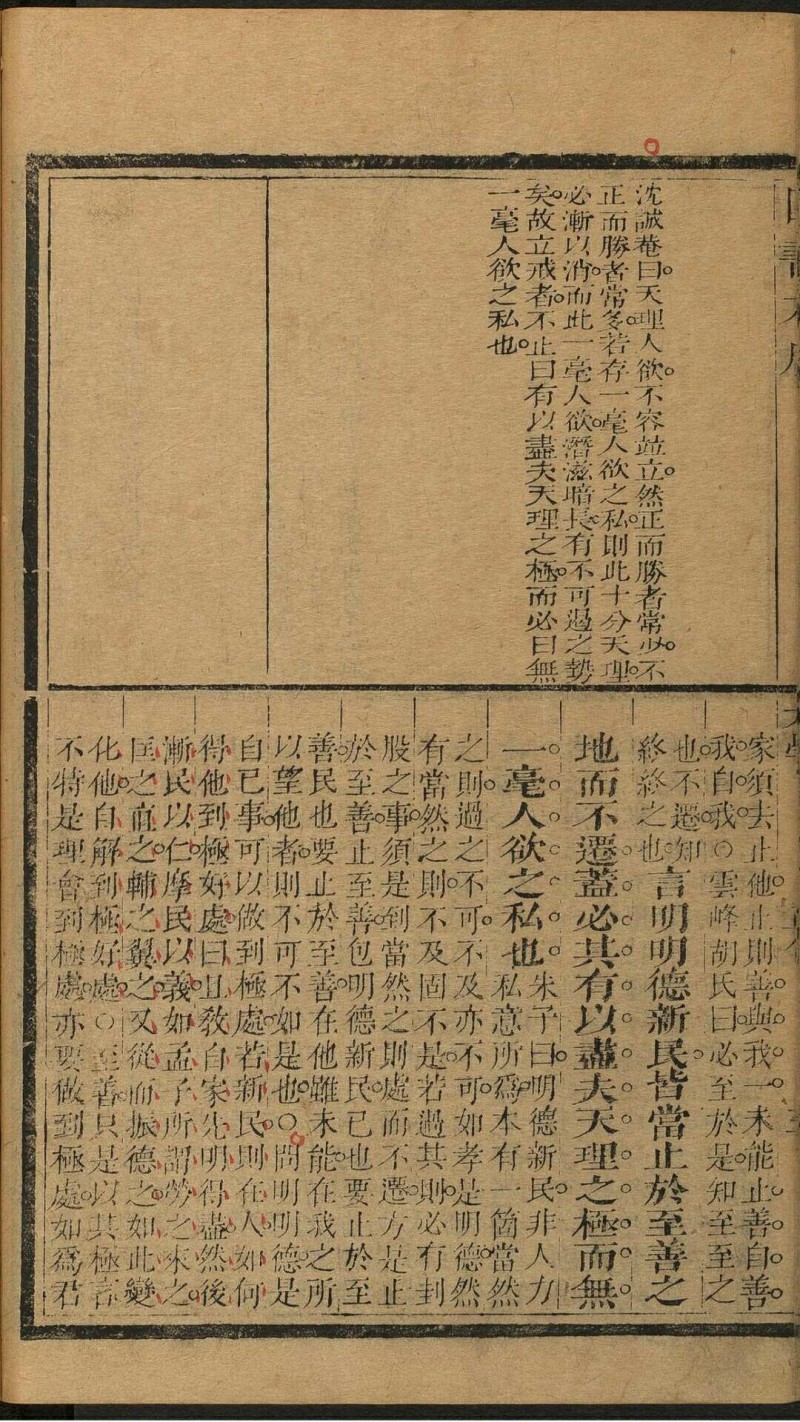 沈誠菴曰。天理人欲。不容竝立。然正而勝者常少。不
正而勝者常多。若存一毫人欲之私。則此十分天理。
必漸以消。而此一毫人欲。潛滋暗長。有不可遏之勢
矣。故立戒者。不止曰有以盡夫天理之極。而必曰無
一毫人欲之私也。
家須去止他。止則善與我一。未能止善。自善。
我。自我。○雲峰胡氏曰。必至於是。知至至之
也。不遷。知
終終之也。
言明明德新民。皆當止於至善之
地而不遷。蓋必其有以盡夫天理之極。而無
一毫人欲之私也。
朱子曰。明德新民。非人力
私意所爲。本有一箇當然
之則。過之不可。不及亦不可。如孝是明德。然
有當然之則。不及固不是。若過其則。必有刲
股之事。須是到當然之則處而不遷。方是止
於至善。止至善。包明德新民。已也要止於至
善。民也要止於至善。在他雖未能。在我之所
以望他者。則不可不如是也。○問明明德是
自已事。可以做到極處。若新民。則在人。如何
得他到極好處。曰。且敎自家先明得盡。然後
漸民以仁。摩民以義。如孟子所謂勞之來之。
匡之直之。輔之翼之。又從而振德之。如此變
化他。自解到極好處。○至善。只是以其極言
不特是理會到極處。亦要做到極處。如爲君